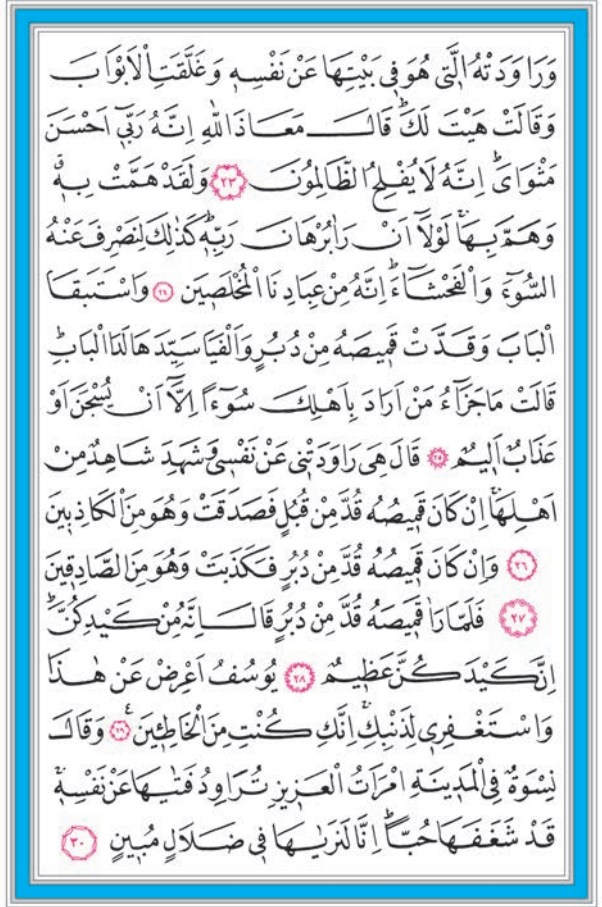 وَرَاوَدَتْهُ الَّتٖى هُوَ فٖى بَيْتِهَا عَنْ نَفْسِهٖ وَغَلَّقَتِ الْاَبْوَابَ
وَقَالَتْ هَيْتَ لَكَؕ قَالَ مَعَاذَ اللّٰهِ اِنَّهُ رَبّٖٓى اَحْسَنَ
مَثْوَاىَؕ اِنَّهُ لَا يُفْلِحُ الظَّالِمُونَ ﴿٢٣﴾ وَلَقَدْ هَمَّتْ بِهٖۚ
وَهَمَّ بِهَاۚ لَوْلَٓا اَنْ رَاٰ بُرْهَانَ رَبِّهٖؕ كَذٰلِكَ لِنَصْرِفَ عَنْهُ
السُّٓوءَ وَالْفَحْشَٓاءَؕ اِنَّهُ مِنْ عِبَادِنَا الْمُخْلَصٖينَ ﴿٢٤﴾ وَاسْتَبَقَا
الْبَابَ وَقَدَّتْ قَمٖيصَهُ مِنْ دُبُرٍ وَاَلْفَيَا سَيِّدَهَا لَدَا الْبَابِؕ
قَالَتْ مَا جَزَٓاءُ مَنْ اَرَادَ بِاَهْلِكَ سُٓوءًا اِلَّٓا اَنْ يُسْجَنَ اَوْ
عَذَابٌ اَلٖيمٌ ﴿٢٥﴾ قَالَ هِىَ رَاوَدَتْنٖى عَنْ نَفْسٖى وَشَهِدَ شَاهِدٌ مِنْ
اَهْلِهَاۚ اِنْ كَانَ قَمٖيصُهُ قُدَّ مِنْ قُبُلٍ فَصَدَقَتْ وَهُوَ مِنَ الْكَاذِبٖينَ
﴿٢٦﴾ وَاِنْ كَانَ قَمٖيصُهُ قُدَّ مِنْ دُبُرٍ فَكَذَبَتْ وَهُوَ مِنَ الصَّادِقٖينَ
﴿٢٧﴾ فَلَمَّا رَاٰ قَمٖيصَهُ قُدَّ مِنْ دُبُرٍ قَالَ اِنَّهُ مِنْ كَيْدِكُنَّؕ
اِنَّ كَيْدَكُنَّ عَظٖيمٌ ﴿٢٨﴾ يُوسُفُ اَعْرِضْ عَنْ هٰذَا
وَاسْتَغْفِرٖى لِذَنْبِكِۚ اِنَّكِ كُنْتِ مِنَ الْخَاطِـٖٔينَ ﴿٢٩﴾ وَقَالَ
نِسْوَةٌ فِى الْمَدٖينَةِ امْرَاَتُ الْعَزٖيزِ تُرَاوِدُ فَتٰيهَا عَنْ نَفْسِهٖۚ
قَدْ شَغَفَهَا حُبًّاؕ اِنَّا لَنَرٰيهَا فٖى ضَلَالٍ مُبٖينٍ ﴿٣٠﴾